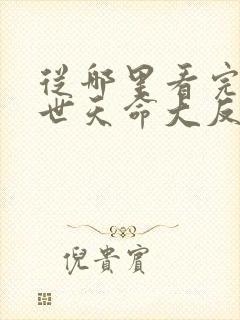 從哪里看完
世天命大反
倪貴賓